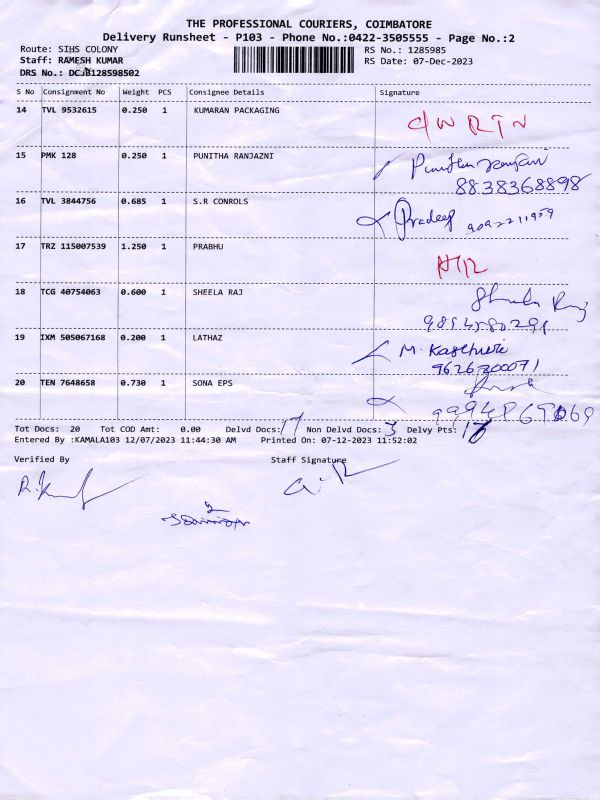 THE PROFESSIONAL COURIERS, COIMBATORE
Delivery Runsheet - P103 - Phone No.:0422-3505555 - Page No.:2
Route: SIHS COLONY RS No.: 1285985
Staff: RAMESH KUMAR RS Date: 07-Dec-2023
DRS No.: DCJB128598502
S No Consignment No Weight PCS Consignee Details Signature
14 TVL 9532615 0.250 1 KUMARAN PACKAGING
RTN
15 PMK 128 0.250 1 PUNITHA RANJAZNI
8838368898
16 TVL 3844756 0.685 1 S.R CONROLS
Pradeep 9092211959
17 TRZ 115007539 1.250 1 PRABHU
18 TCG 40754063 0.600 1 SHEELA RAJ
19 IXM 505067168 0.200 1 LATHAZ
M. Kasthuri
9626700071
20 TEN 7648658 0.730 1 SONA EPS
Tot Docs: 20 Tot COD Amt: 0.00 Delvd Docs: 17 Non Delvd Docs: 3 Delvy Pts:
Entered By :KAMALA103 12/07/2023 11:44:30 AM Printed On: 07-12-2023 11:52:02
Verified By Staff Signature